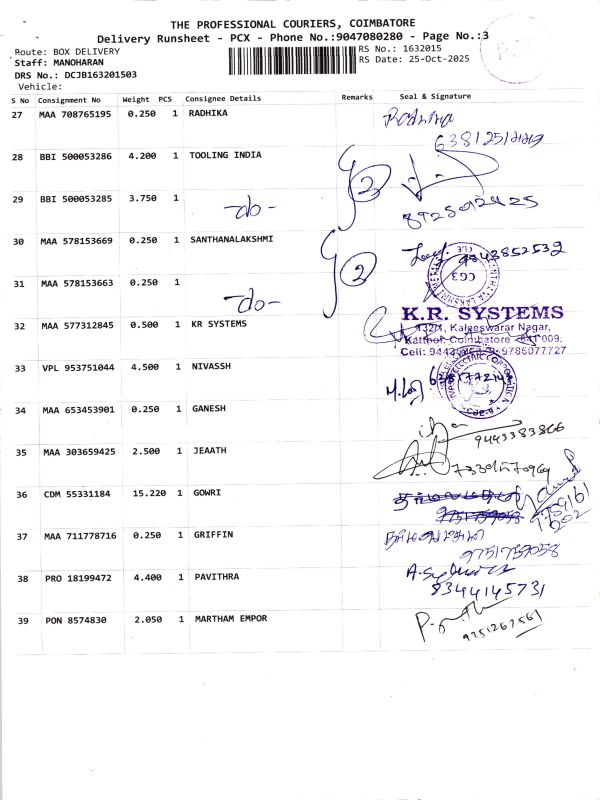 THE PROFESSIONAL COURIERS, COIMBATORE
Delivery Runsheet - PCX - Phone No.:9047080280 - Page No.:3
Route: BOX DELIVERY
RS No.: 1632015
Staff: MANOHARAN
RS Date: 25-Oct-2025
DRS No.: DCJB163201503
Vehicle:
S No Consignment No Weight PCS Consignee Details Remarks Seal & Signature
27 MAA 708765195 0.250 1 RADHIKA
28 BBI 500053286 4.200 1 TOOLING INDIA
2
29 BBI 500053285 3.750 1
-do-
8925092425
30 MAA 578153669 0.250 1 SANTHANALAKSHMI
2
CG3
31 MAA 578153663 0.250 1
-do-
32 MAA 577312845 0.500 1 KR SYSTEMS
K.R. SYSTEMS
Kaleeswarar Nagar,
Kattoor, Coimbatore - 641 009.
9786077727
33 VPL 953751044 4.500 1 NIVASSH
34 MAA 653453901 0.250 1 GANESH
9443383866
35 MAA 303659425 2.500 1 JEAATH
36 CDM 55331184 15.220 1 GOWRI
37 MAA 711778716 0.250 1 GRIFFIN
9751759058
38 PRO 18199472 4.400 1 PAVITHRA
8344145731
39 PON 8574830 2.050 1 MARTHAM EMPOR